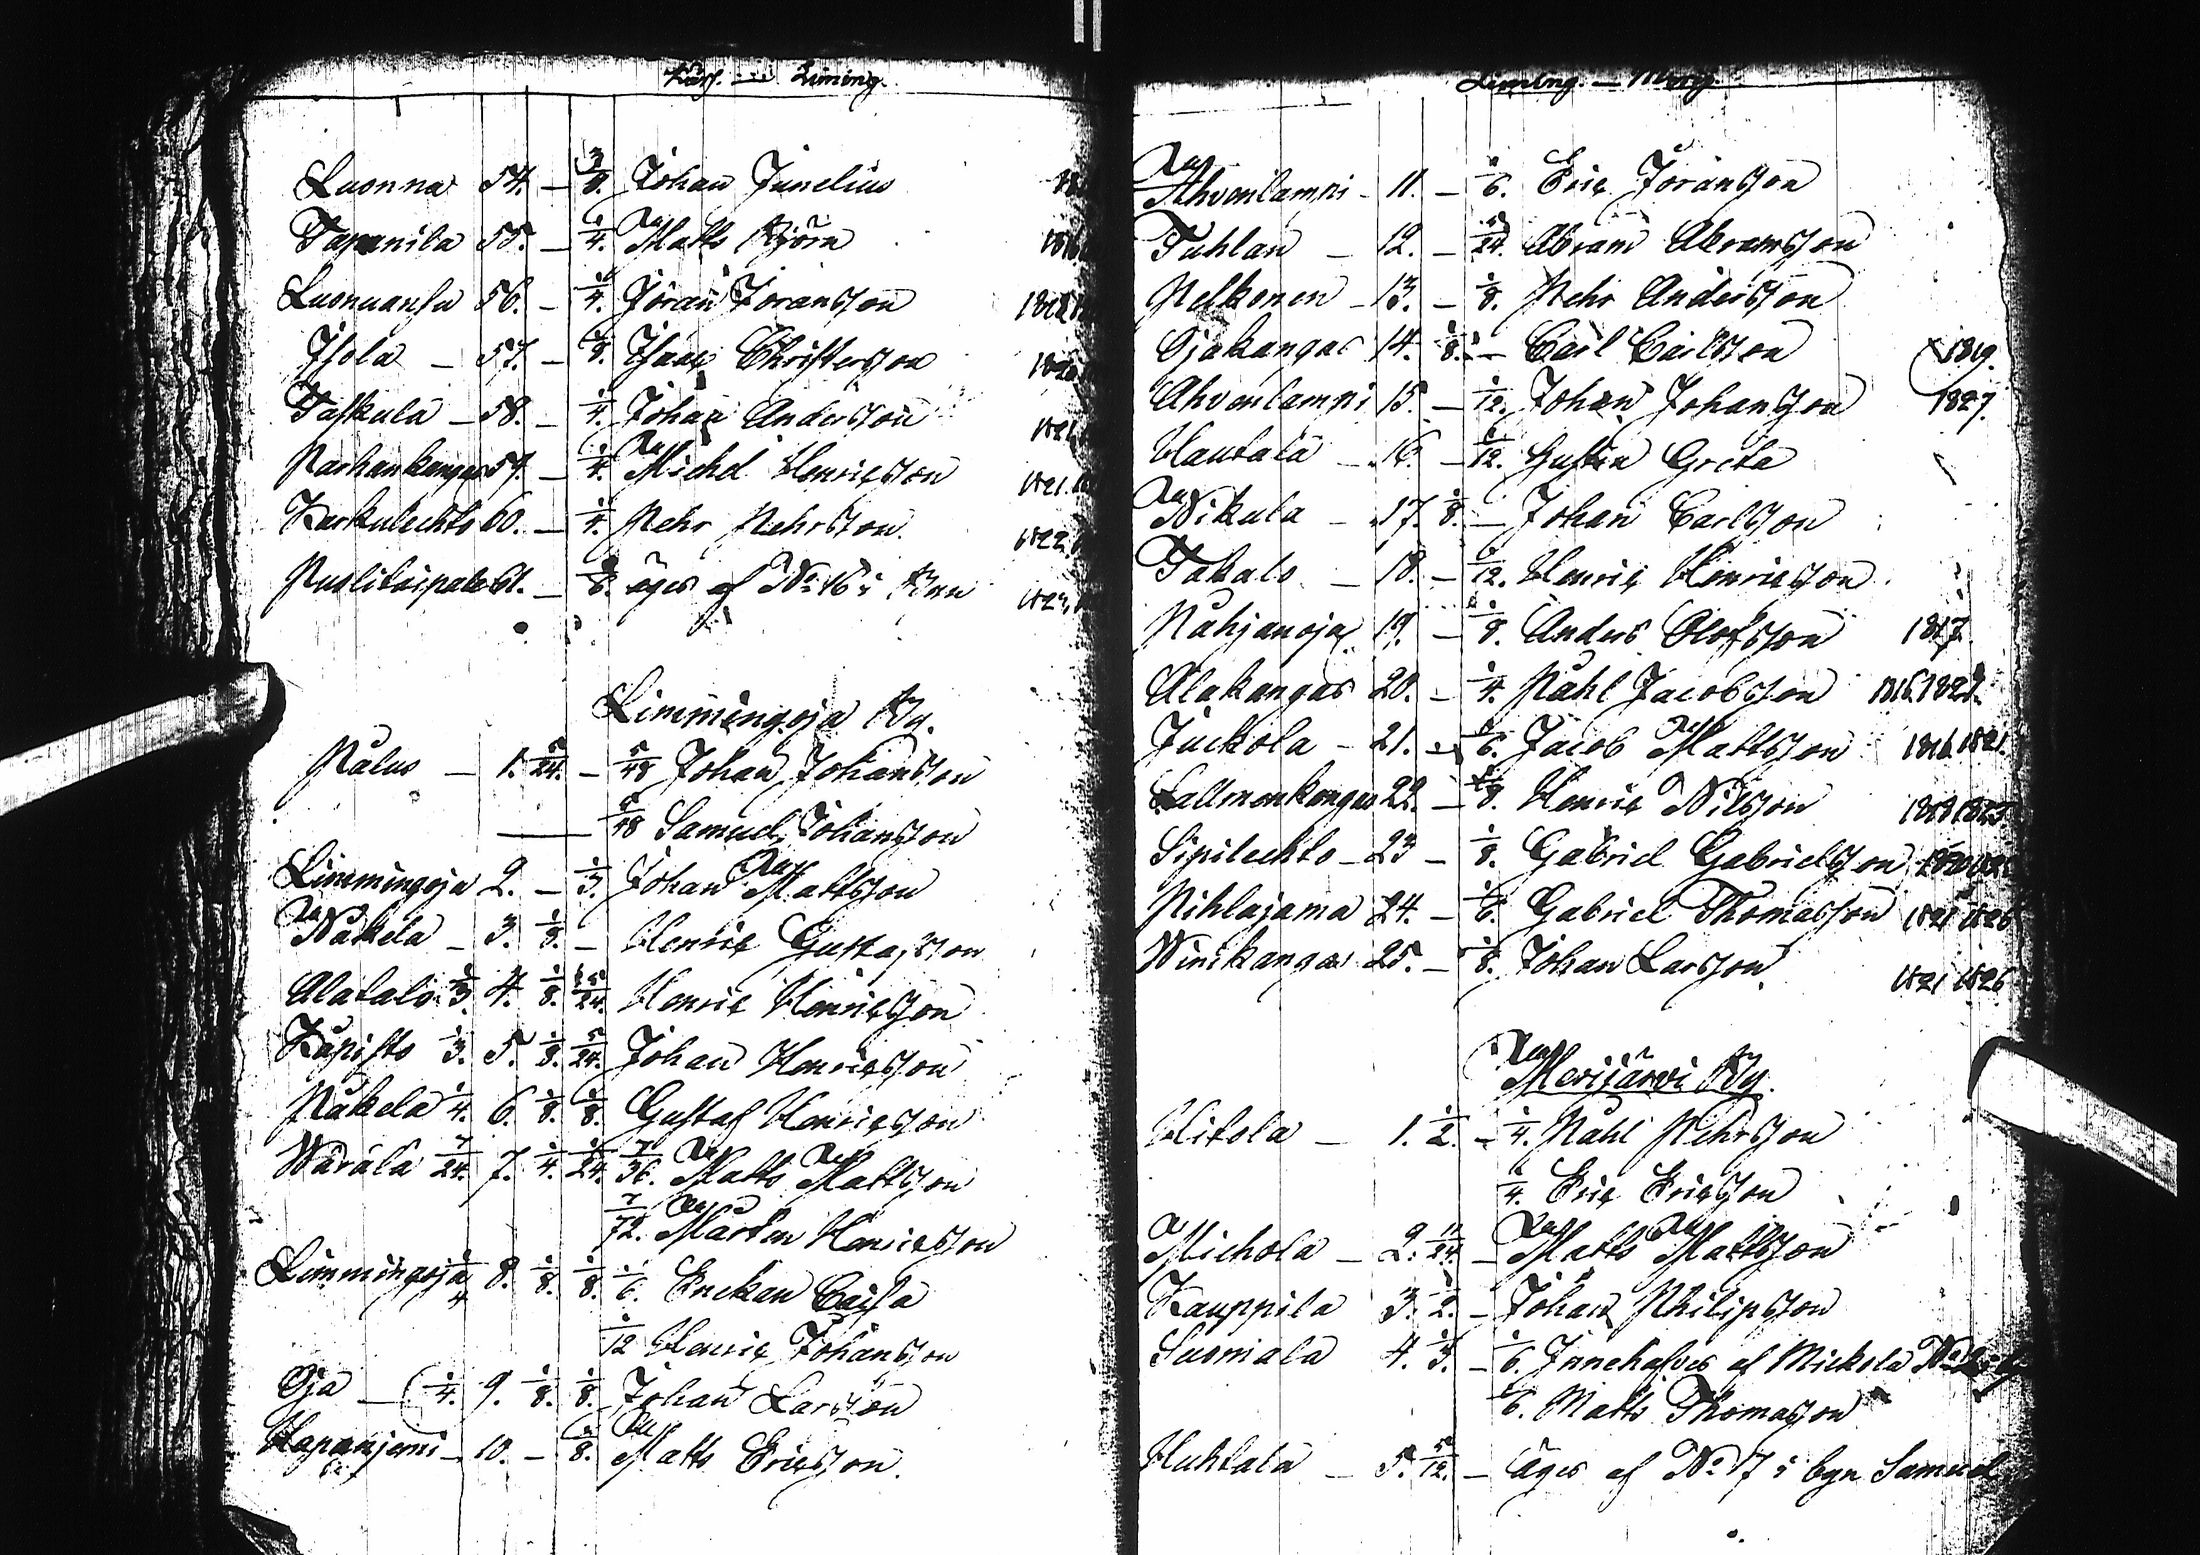 Limingo
Luonna 54. — 3/8. Johan Junelius
Tapanila 55. — 1/4. Matts Björn
Luonuansu 56. — 1/4. Jöran Joransson
Isola — 57. — Isaac Christersson
Taskula — 58. — 1/4. Johan Andersson
Parhankangas 59. — 1/4. Michel Henricsson 1821.
Karkulechto 60. — 1/4. Pehr Pehrsson. 1822.
Puolitaipale 61. — äges af No 16 i Byn
Limmingoja By.
Pålus — 1. 5/24. — 5/48 Johan Johansson
— 5/48 Samuel Johansson
Limmingoja 2. — 1/3. Johan Mattsson
Näkelä — 3. 1/8. — Henric Gustafsson
Alatalo 1/3 4. 1/8. 5/24. Henric Henricsson
Kåpisto 1/3. 5. 1/8. 5/24. Johan Henricsson
Påkela 1/4. 6. 1/8. 1/8. Gustaf Henricsson
Wärälä 7/24. 7. 1/4. 1/24. 7/36. Matts Mattsson
7/72. Mårten Henricsson
Limmingoja 1/4 8. 1/8. 1/8. 1/6. Enckan Caisa
1/12 Henric Johansson
Oja — 1/4. 9. 1/8. 1/8. Johan Larsson
Hapanjemi — 10. — 1/8. Matts Ericsson.
Limingo — Merij.
Ahvenlampi — 11. — 1/6. Eric Joransson
Tuhlan — 12. — 5/24. Abram Abramsson
Pelkonen — 13. — 1/8. Pehr Andersson
Ojakangas 14. 1/8. — Carl Carlsson 1819.
Ahvenlampi 15. — 1/12. Johan Johansson 1827.
Hautala — 16. — 1/12. Hustru Greta
Nikula — 17. 1/8. — Johan Carlsson
Takalo — 18. — 1/12. Henric Henricsson
Påhjanoja 19. — 1/8. Anders Olofsson 1817
Alakangas 20. — 1/4. Påhl Jacobsson
Juckola — 21. — 1/6. Jacob Mattsson 1816. 1821.
Sallmenkangas 22. — 1/8. Henric Nilsson
Sipilechto — 23 — 1/8. Gabriel Gabrielsson
Pihlajama 24. — 1/8. Gabriel Thomasson 1821 1826
Winikangas 25. — 1/8. Johan Larsson 1821 1826
Merijärvi By.
Hitola — 1. 1/2. — 1/4. Påhl Pehrsson
1/4. Eric Ericsson
Michola — 2. 11/24. — Matts Mattsson
Kauppila 3. 1/2. — Johan Philipsson
Suomala 4. 1/3. — 1/6. Innehafves af Mickola No
1/6. Matts Thomasson
Huhtala — 5. 5/12. — äges af No 17 i byn Samuel